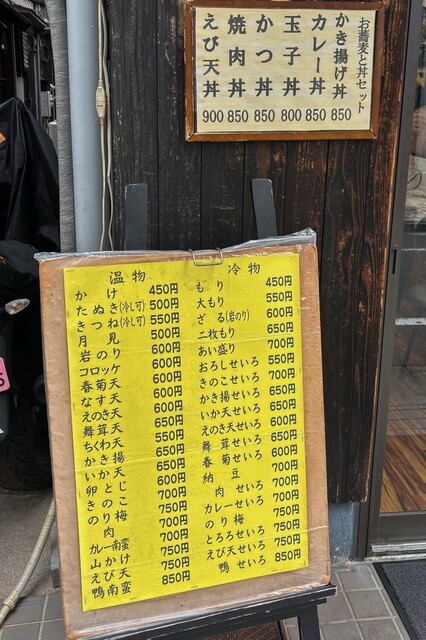 お蕎麦と丼セット
かき揚げ丼 850
カレー丼 850
玉子丼 800
かつ丼 850
焼肉丼 850
えび天丼 900
温物
かけ 450円
たぬき(冷し可) 500円
きつね(冷し可) 550円
月見 500円
岩のり 600円
コロッケ 600円
春菊天 600円
なす天 600円
えのき天 600円
舞茸天 650円
ちくわ天 550円
かき揚 650円
いか天 650円
卵とじ 600円
きのこ 700円
のり梅 750円
肉 700円
カレー南蛮 700円
山かけ 750円
えび天 750円
鴨南蛮 850円
冷物
もり 450円
大もり 550円
ざる(岩のり) 600円
二枚もり 650円
あい盛り 700円
おろしせいろ 550円
きのこせいろ 700円
かき揚せいろ 650円
いか天せいろ 650円
えのき天せいろ 600円
舞茸せいろ 650円
春菊せいろ 600円
納豆 600円
肉せいろ 700円
カレーせいろ 700円
のり梅 750円
とろろせいろ 750円
えび天せいろ 750円
鴨せいろ 850円